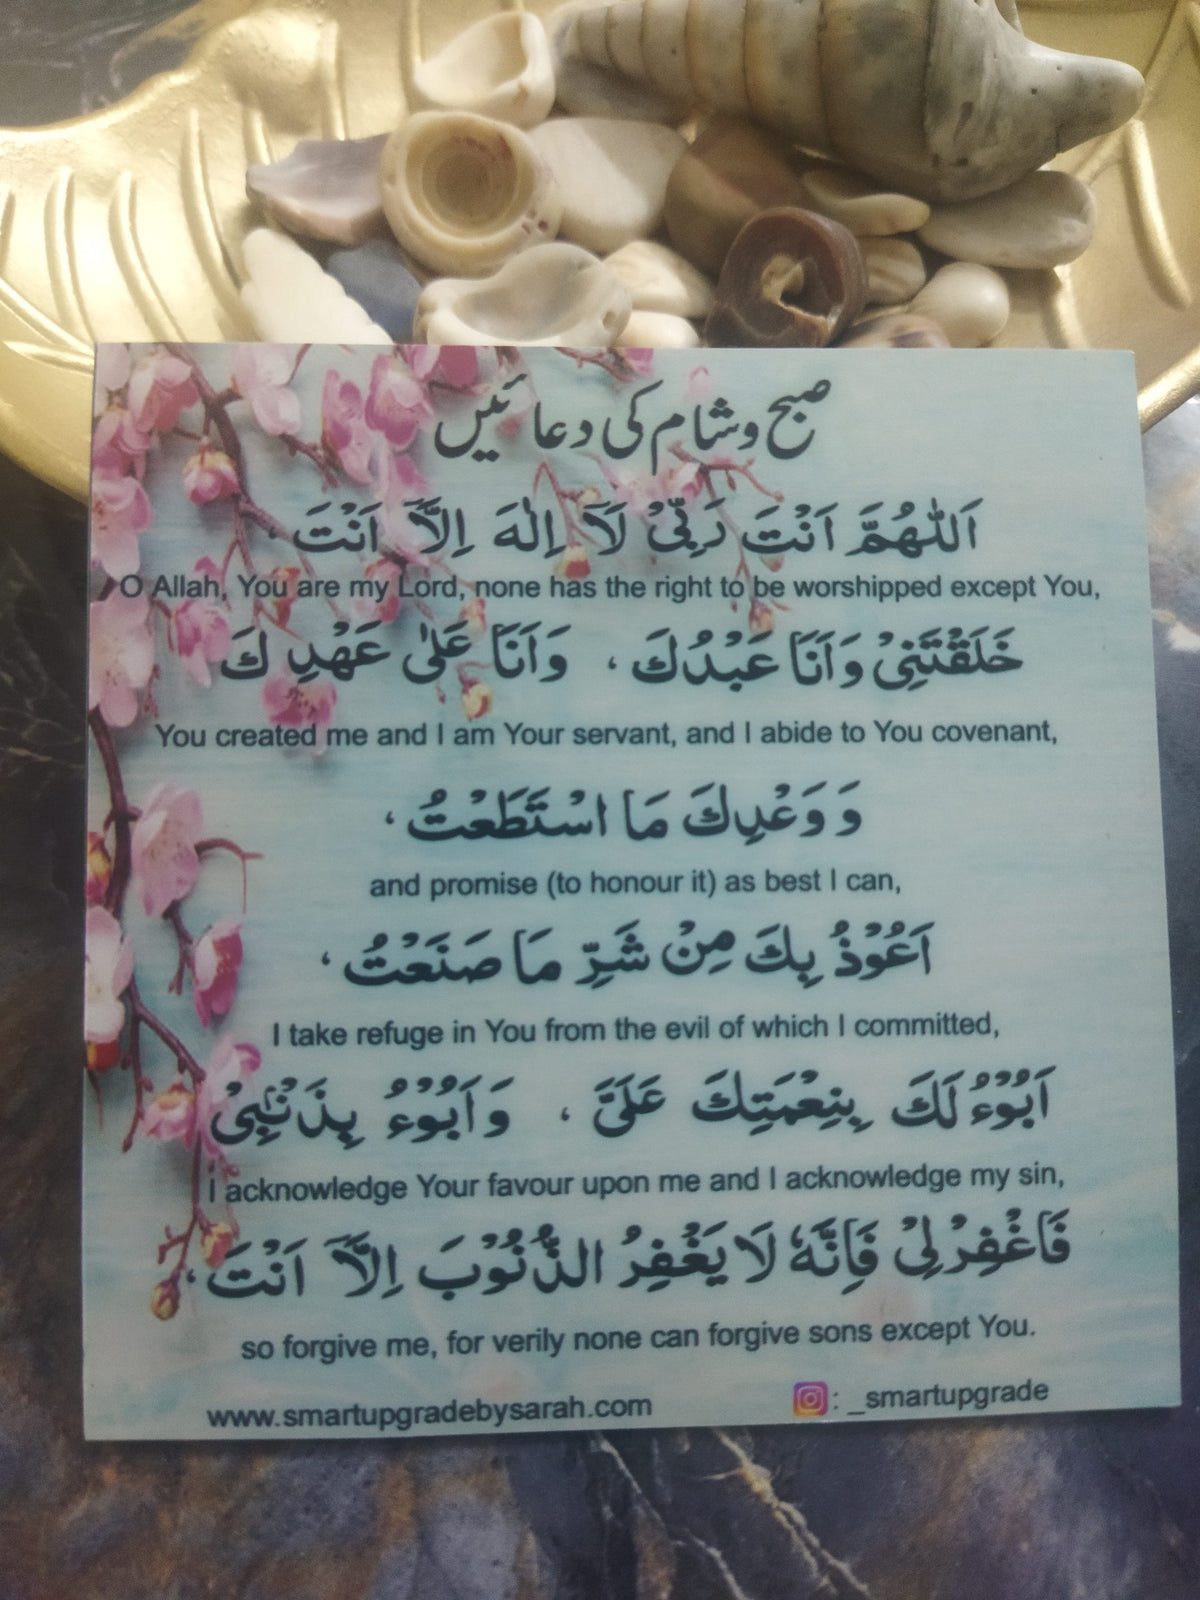 صبح و شام کی دعائیں
اَللّٰهُمَّ اَنْتَ رَبِّىْ لَاۤ اِلٰهَ اِلَّاۤ اَنْتَ ،
O Allah, You are my Lord, none has the right to be worshipped except You,
خَلَقْتَنِىْ وَاَنَا عَبْدُكَ ، وَاَنَا عَلٰى عَهْدِكَ
You created me and I am Your servant, and I abide to You covenant,
وَ وَعْدِكَ مَا اسْتَطَعْتُ ،
and promise (to honour it) as best I can,
اَعُوْذُ بِكَ مِنْ شَرِّ مَا صَنَعْتُ ،
I take refuge in You from the evil of which I committed,
اَبُوْءُ لَكَ بِنِعْمَتِكَ عَلَىَّ ، وَاَبُوْءُ بِذَنْۢبِىْ
I acknowledge Your favour upon me and I acknowledge my sin,
فَاغْفِرْ لِىْ فَاِنَّهٗ لَا يَغْفِرُ الذُّنُوْبَ اِلَّاۤ اَنْتَ ،
so forgive me, for verily none can forgive sons except You.
www.smartupgradebysarah.com : _smartupgrade